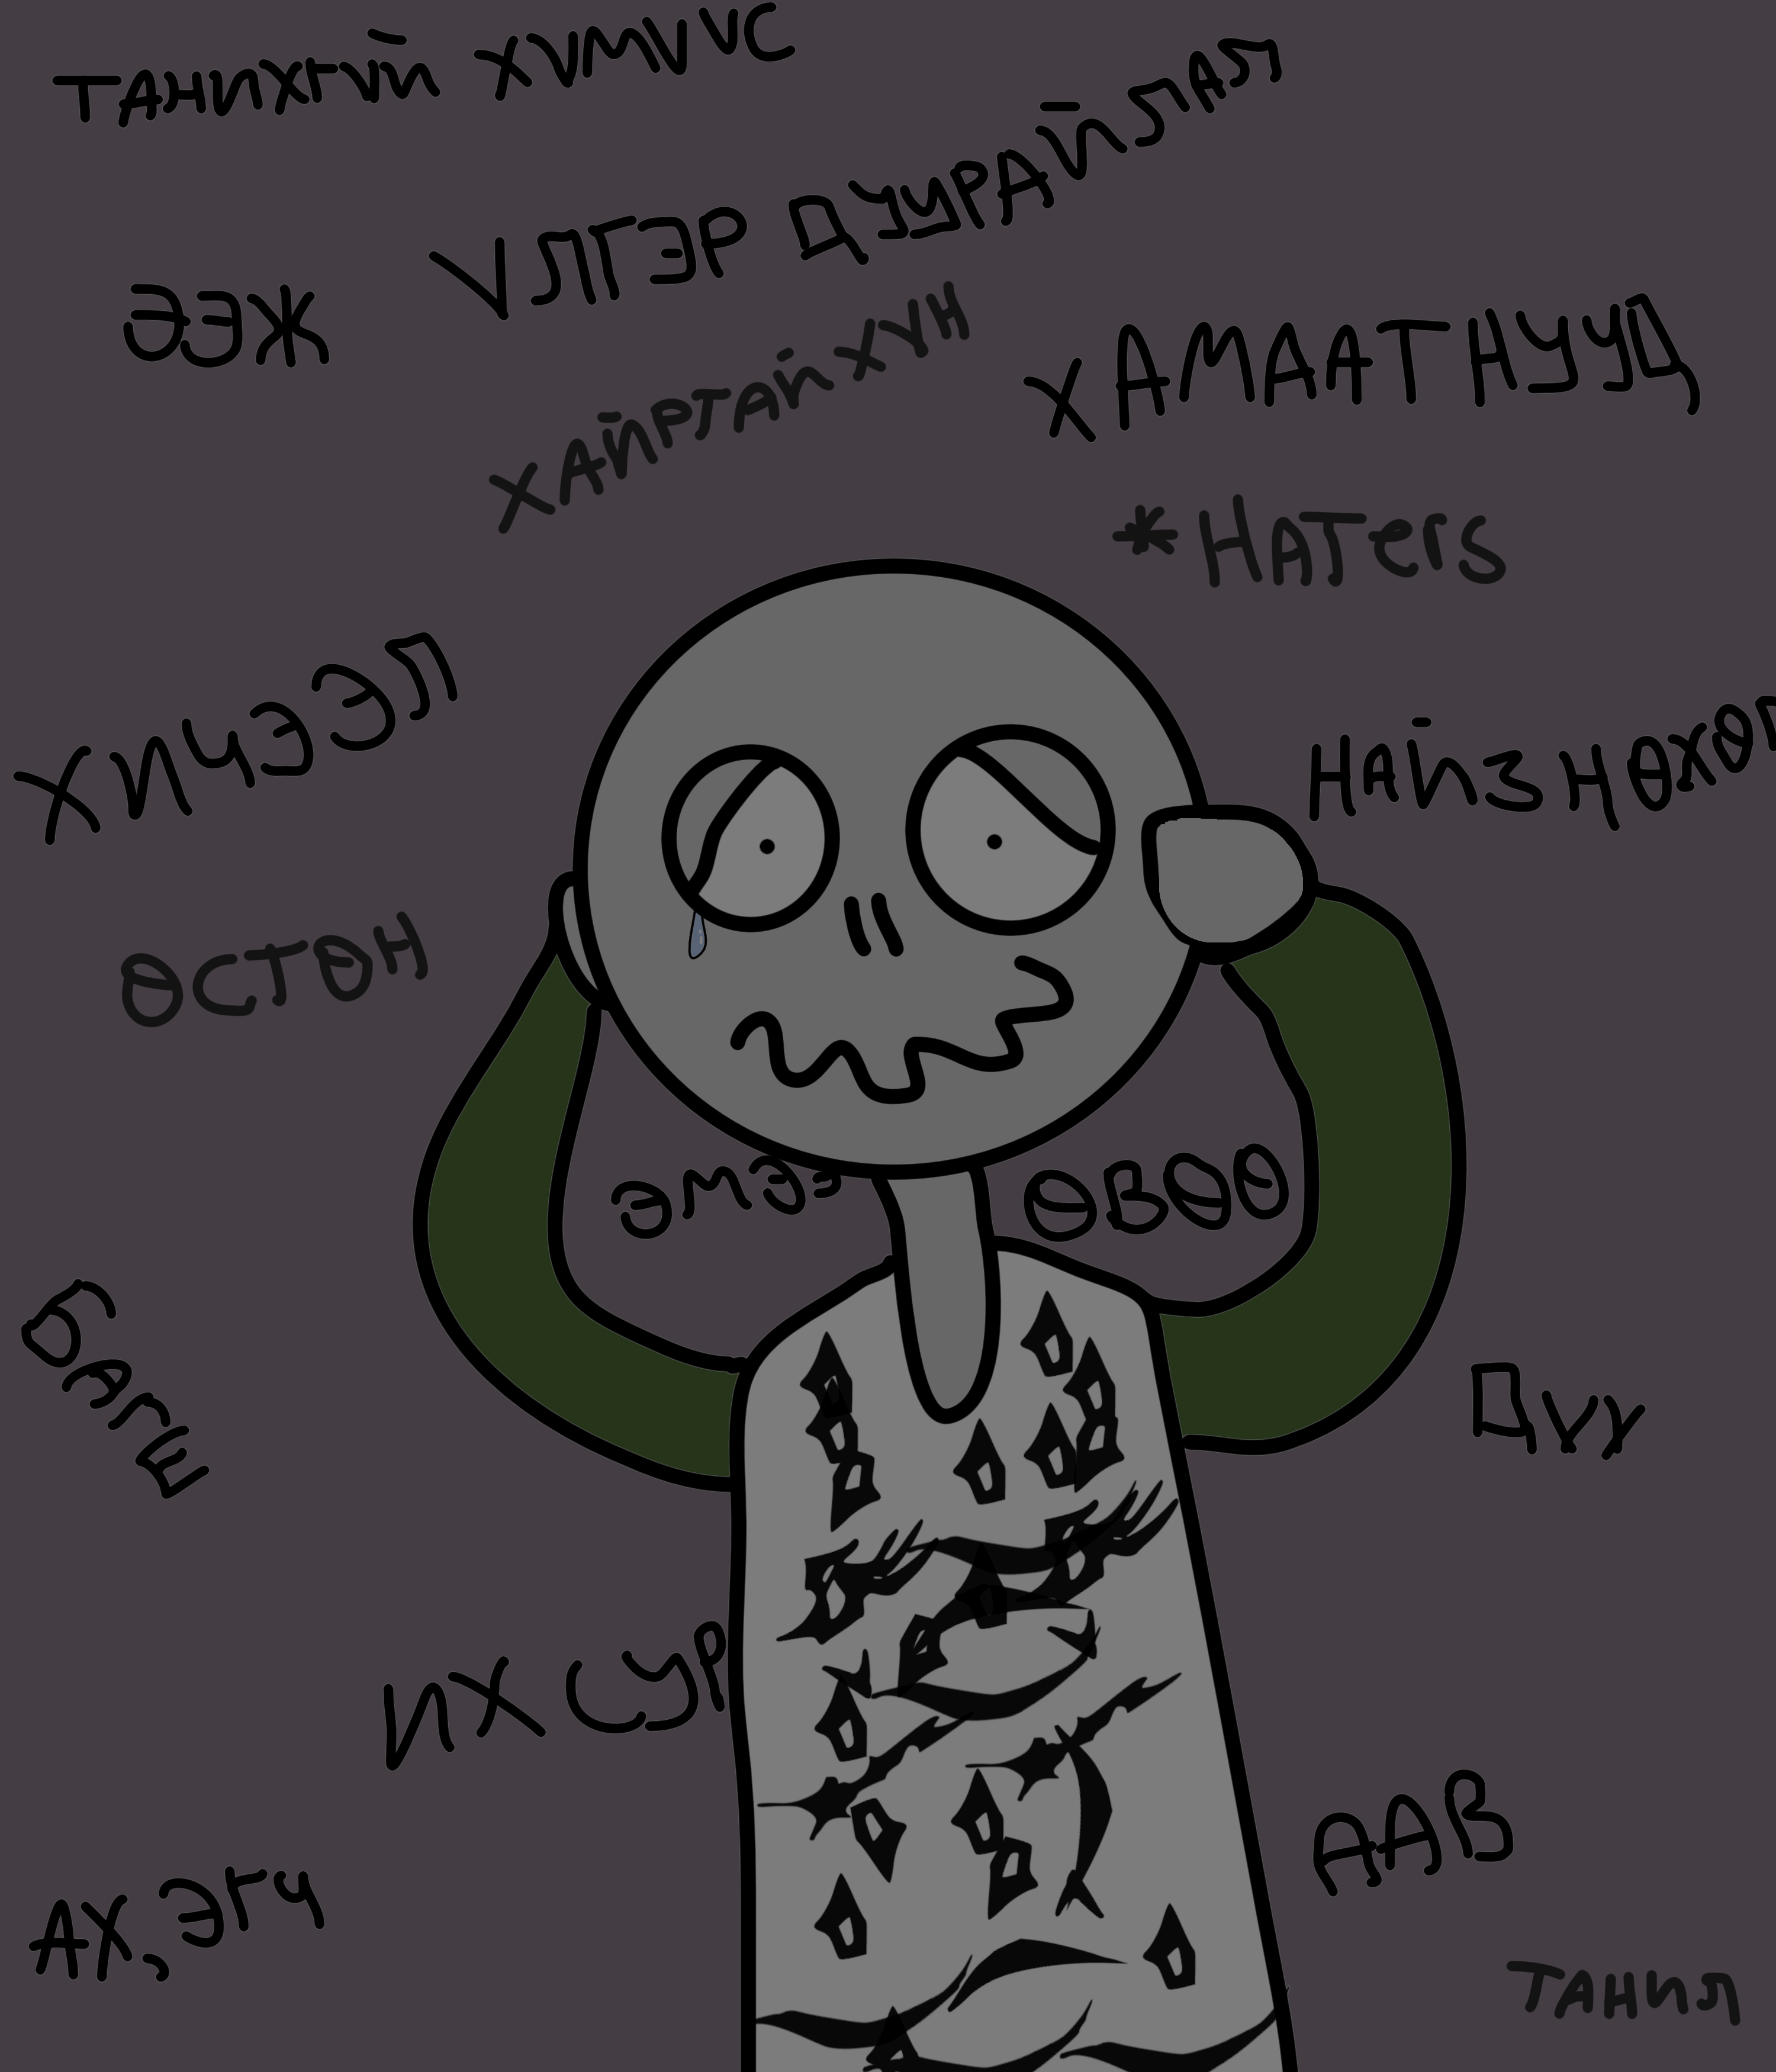 ТАНИХГҮЙ ХҮМҮҮС
ҮЛГЭР ДУУРАЙЛАЛ
ЭЭЖ
ХАЙРТАЙ ХҮН
ХАМААТНУУД
*HATERS
ХИЧЭЭЛ
НАЙЗ НӨХӨД
ӨСТӨН
ЭМЭЭ
ӨВӨӨ
БАГШ
ДҮҮ
ИХ СУР
ААВ
АХ, ЭГЧ
ТАНИЛ